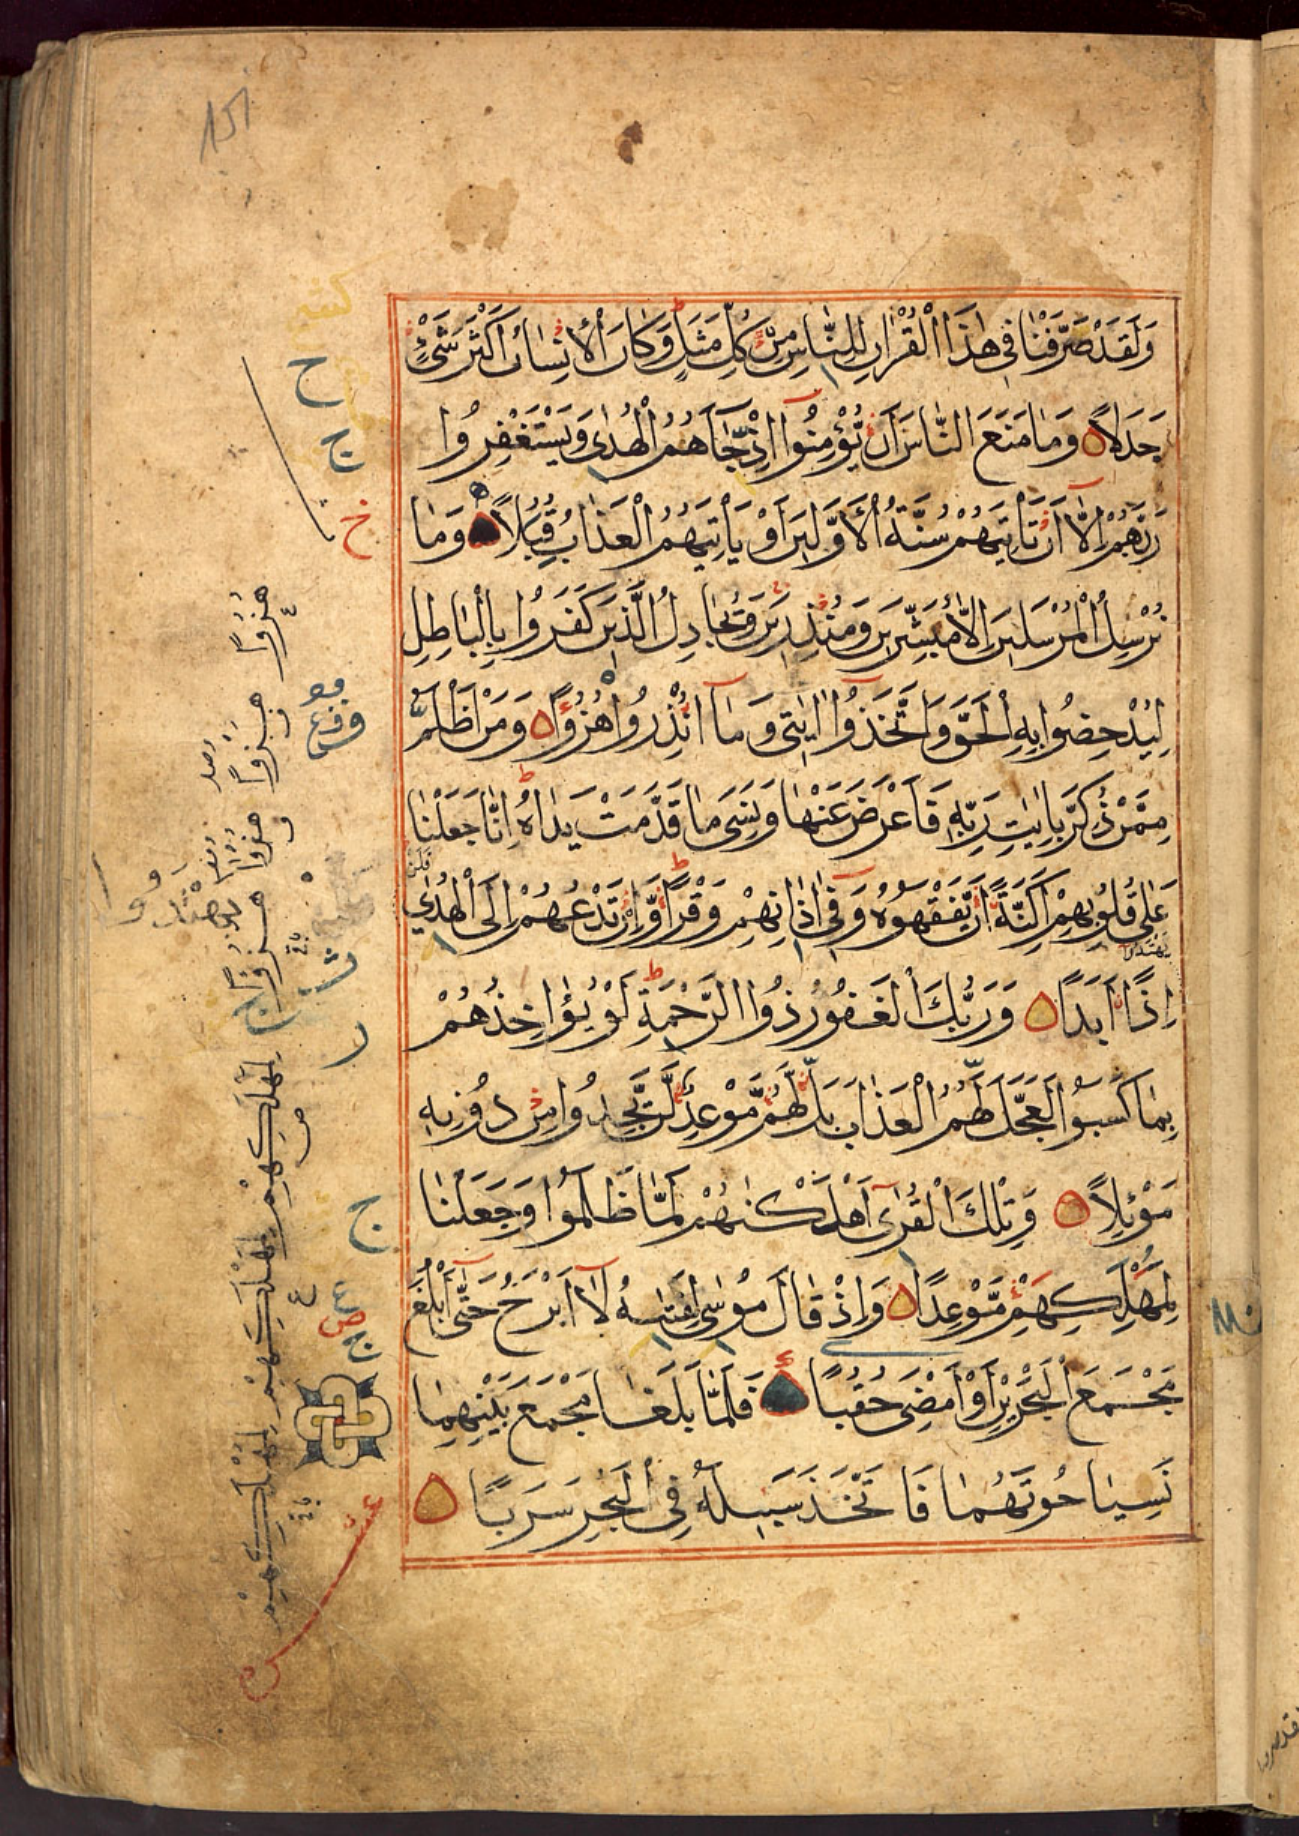 151
وَلَقَدْ صَرَّفْنَا فِي هٰذَا الْقُرْاٰنِ لِلنَّاسِ مِنْ كُلِّ مَثَلٍ وَكَانَ الْاِنْسَانُ اَكْثَرَ شَيْءٍ
جَدَلًا وَمَا مَنَعَ النَّاسَ اَنْ يُؤْمِنُوا اِذْ جَاءَهُمُ الْهُدٰى وَيَسْتَغْفِرُوا
رَبَّهُمْ اِلَّا اَنْ تَأْتِيَهُمْ سُنَّةُ الْاَوَّلِينَ اَوْ يَأْتِيَهُمُ الْعَذَابُ قُبُلًا وَمَا
نُرْسِلُ الْمُرْسَلِينَ اِلَّا مُبَشِّرِينَ وَمُنْذِرِينَ وَيُجَادِلُ الَّذِينَ كَفَرُوا بِالْبَاطِلِ
لِيُدْحِضُوا بِهِ الْحَقَّ وَاتَّخَذُوا اٰيَاتِي وَمَا اُنْذِرُوا هُزُوًا وَمَنْ اَظْلَمُ
مِمَّنْ ذُكِّرَ بِاٰيَاتِ رَبِّهِ فَاَعْرَضَ عَنْهَا وَنَسِيَ مَا قَدَّمَتْ يَدَاهُ اِنَّا جَعَلْنَا
عَلٰى قُلُوبِهِمْ اَكِنَّةً اَنْ يَفْقَهُوهُ وَفِي اٰذَانِهِمْ وَقْرًا وَاِنْ تَدْعُهُمْ اِلَى الْهُدٰى
فَلَنْ
يَهْتَدُوا
اِذًا اَبَدًا وَرَبُّكَ الْغَفُورُ ذُوا الرَّحْمَةِ لَوْ يُؤَاخِذُهُمْ
بِمَا كَسَبُوا لَعَجَّلَ لَهُمُ الْعَذَابَ بَلْ لَهُمْ مَوْعِدٌ لَنْ يَجِدُوا مِنْ دُونِهِ
مَوْئِلًا وَتِلْكَ الْقُرٰى اَهْلَكْنَاهُمْ لَمَّا ظَلَمُوا وَجَعَلْنَا
لِمَهْلِكِهِمْ مَوْعِدًا وَاِذْ قَالَ مُوسٰى لِفَتٰيهُ لَا اَبْرَحُ حَتّٰى اَبْلُغَ
مَجْمَعَ الْبَحْرَيْنِ اَوْ اَمْضِيَ حُقُبًا فَلَمَّا بَلَغَا مَجْمَعَ بَيْنِهِمَا
نَسِيَا حُوتَهُمَا فَاتَّخَذَ سَبِيلَهُ فِي الْبَحْرِ سَرَبًا
ح
ج
خ
هُزُوًا
هُزُوًا
ج
لِمَهْلِكِهِمْ
لِمَهْلِكِهِمْ